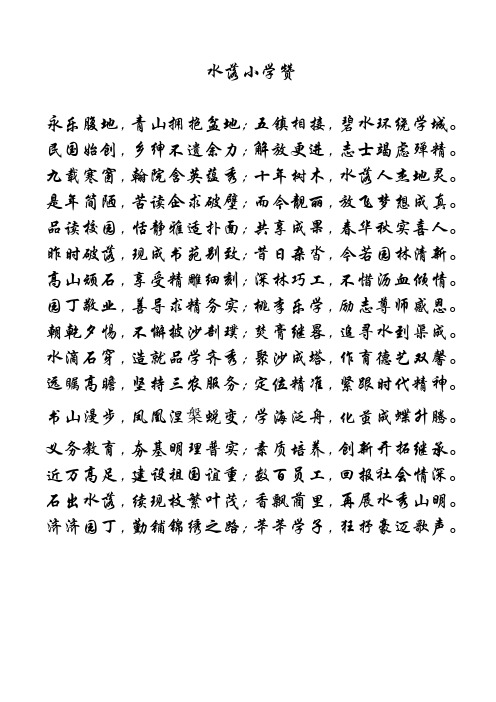 水落小学赞
永乐腹地，青山拥抱盆地；五镇相接，碧水环绕学城。
民国始创，乡绅不遗余力；解放更进，志士竭虑殚精。
九载寒窗，翰院含英蕴秀；十年树木，水落人杰地灵。
是年简陋，苦读企求破壁；而今靓丽，放飞梦想成真。
品读校园，恬静雅适扑面；共享成果，春华秋实喜人。
昨时破落，现成书苑别致；昔日杂沓，今若园林清新。
高山顽石，享受精雕细刻；深林巧工，不惜沥血倾情。
园丁敬业，善导求精务实；桃李乐学，励志尊师感恩。
朝乾夕惕，不懈披沙剖璞；焚膏继晷，追寻水到渠成。
水滴石穿，造就品学齐秀；聚沙成塔，作育德艺双馨。
远瞩高瞻，坚持三农服务；定位精准，紧跟时代精神。
书山漫步，凤凰涅槃蜕变；学海泛舟，化茧成蝶升腾。
义务教育，夯基明理普实；素质培养，创新开拓继承。
近万高足，建设祖国谊重；数百员工，回报社会情深。
石出水落，续现枝繁叶茂；香飘蔺里，再展水秀山明。
济济园丁，勤铺锦绣之路；莘莘学子，狂抒豪迈歌声。